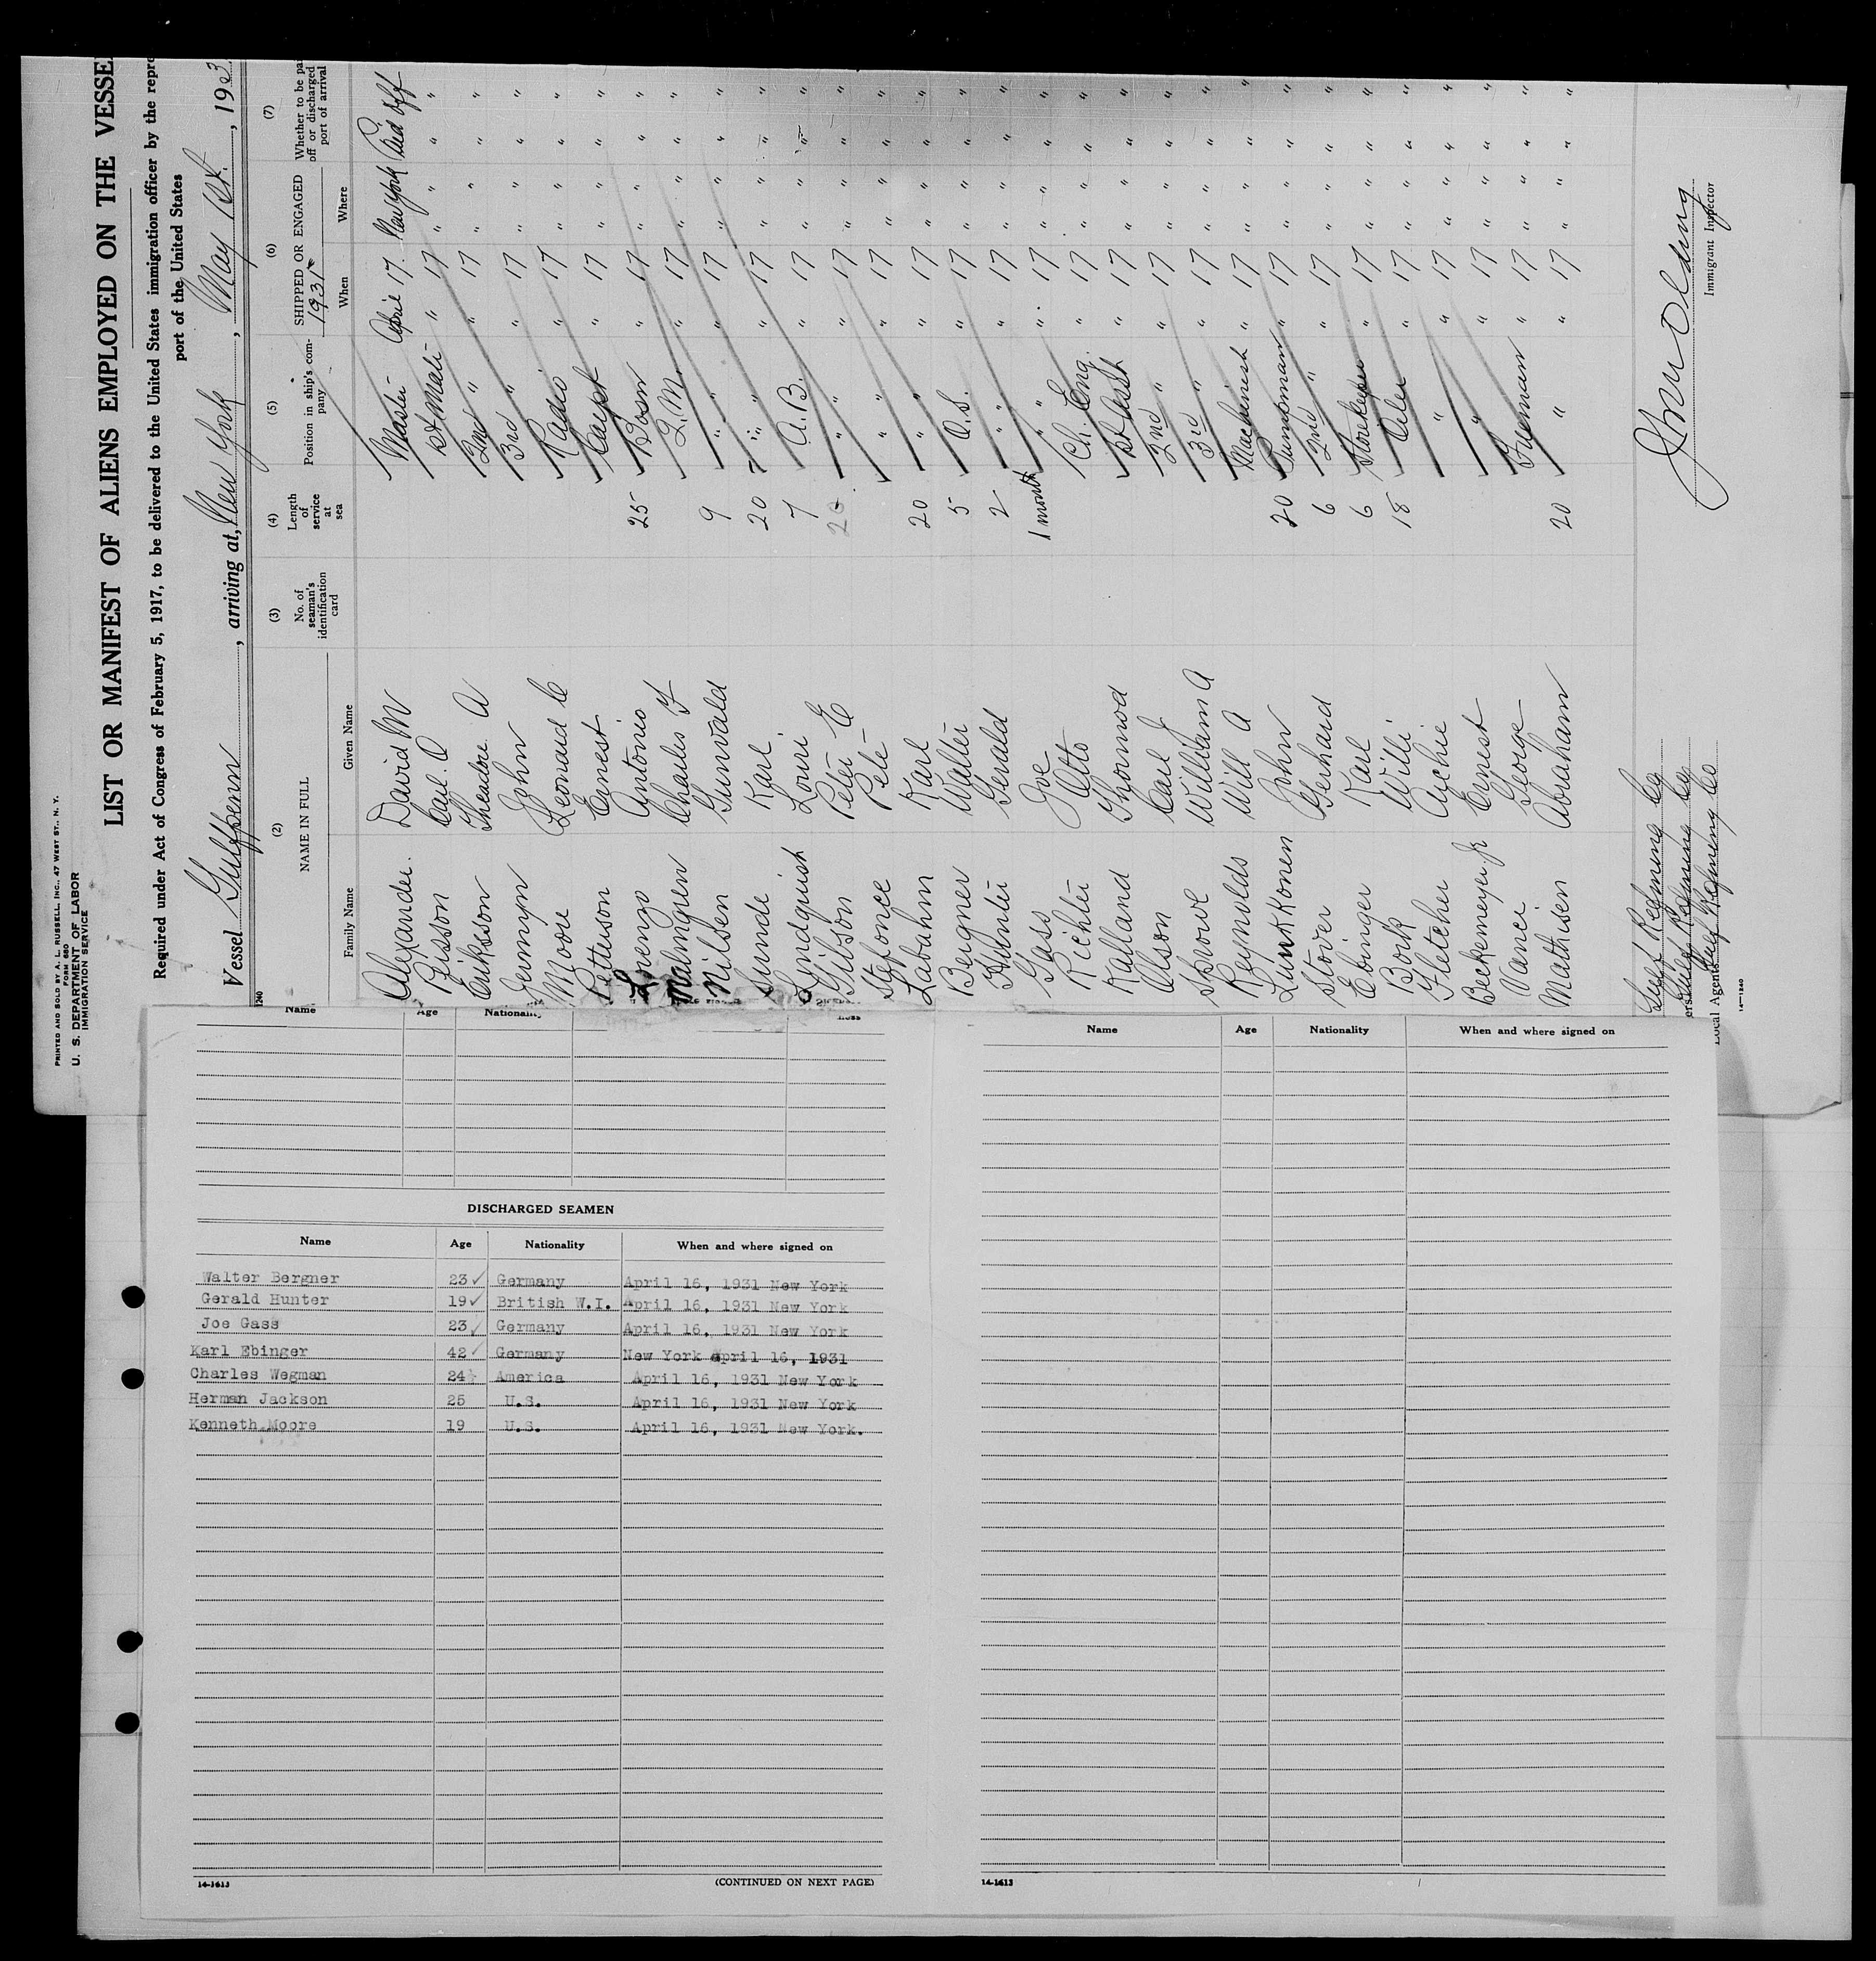 PRINTED AND SOLD BY A. L. RUSSELL, INC., 47 WEST ST., N. Y.
FORM 680
U. S. DEPARTMENT OF LABOR
IMMIGRATION SERVICE
LIST OR MANIFEST OF ALIENS EMPLOYED ON THE VESSEL
Required under Act of Congress of February 5, 1917, to be delivered to the United States immigration officer by the repre
port of the United States
Vessel Gulfpenn, arriving at, New York, May 1st., 193
(2) (3) (4) (5) (6) (7)
NAME IN FULL No. of seaman's identification card Length of service at sea Position in ship's company SHIPPED OR ENGAGED 1931 Whether to be pa off or discharged port of arrival
Family Name Given Name When Where
Alexander David M Master April 17. New York Paid off
Carl. O 1st Mate " 17 " " " "
Eriksson Theadore A 2nd " " 17 " " " "
John 3rd " " 17 " " " "
Moore Leonard C Radio " 17 " " " "
Petterson Ernest Carpt " 17 " " " "
Antonio 25 Bosn " 17 " " " "
Malmgren Charles F Q.M. " 17 " " " "
Nilsen Gunvald 9 " " " 17 " " " "
Sunde Karl 20 " " " 17 " " " "
Lindquish Louis 7 A.B. " 17 " " " "
Gibson Peter E " " 17 " " " "
Stefonce Pete " " 17 " " " "
Labahm Karl 20 " " 17 " " " "
Bergner Walter 5 O.S. " 17 " " " "
Hunter Gerald 2 " " " 17 " " " "
Gass Joe 1 month " " 17 " " " "
Richter Otto Ch. Eng. " 17 " " " "
Kalland Thormod 1st Asst " 17 " " " "
Olson Carl J 2nd " " 17 " " " "
William A 3rd " " 17 " " " "
Reynolds Will A Machinist " 17 " " " "
Lunkkonen John 20 Pumpman " 17 " " " "
Stover Gerhard 6 2nd " " 17 " " " "
Ebinger Karl 6 Storekeeper " 17 " " " "
Bork Willi 18 Oiler " 17 " " " "
Fletcher Archie " " 17 " " " "
Beckemeyer Jr Ernest " " 17 " " " "
Vance George Fireman " 17 " " " "
Mathisen Abraham 20 " " 17 " " " "
Gulf Refining Co
Gulf Refining Co
Local Agents Gulf Refining Co
Immigrant Inspector
14—1240
Name Age Nationality
DISCHARGED SEAMEN
Name Age Nationality When and where signed on
Walter Bergner 23 ✓ Germany April 16, 1931 New York
Gerald Hunter 19 ✓ British W.I. April 16, 1931 New York
Joe Gass 23 ✓ Germany April 16, 1931 New York
Karl Ebinger 42 ✓ Germany New York April 16, 1931
Charles Wegman 24 America April 16, 1931 New York
Herman Jackson 25 U.S. April 16, 1931 New York
Kenneth Moore 19 U.S. April 16, 1931 New York.
14-1613
(CONTINUED ON NEXT PAGE)
Name Age Nationality When and where signed on
14-1613